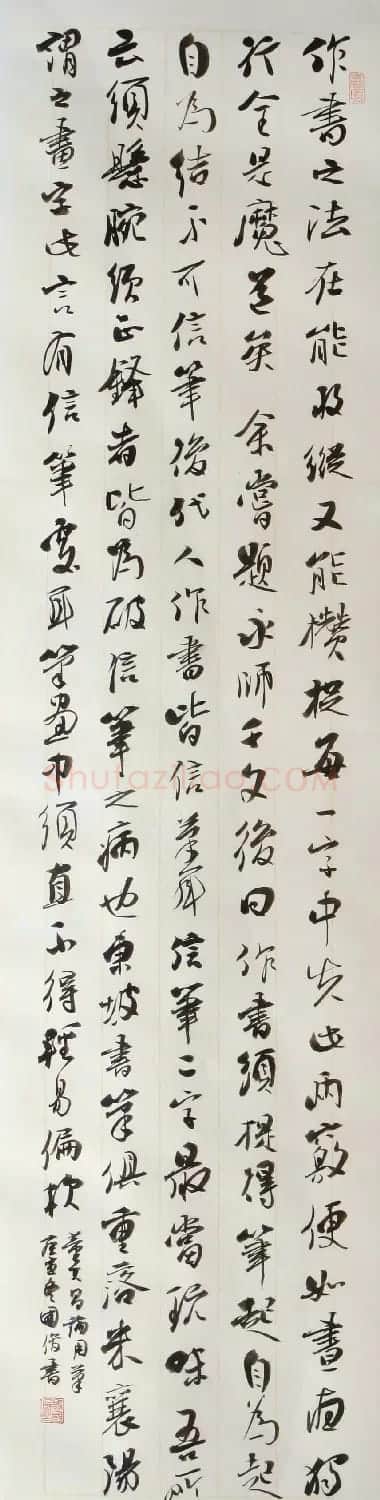 作書之法在能放縱又能攢捉每一字中失此兩竅便如晝夜獨
行全是魔道矣余嘗題永師千文後曰作書須提得筆起自為起
自為結不可信筆後代人作書皆信筆耳信筆二字最當玩味吾所
云須懸腕須正鋒者皆為破信筆之病也東坡書筆俱重落米襄陽
謂之畫字此言有信筆處耳筆畫中須直不得輕易偏軟
董其昌論用筆
冬國書
Shufaziliao.COM